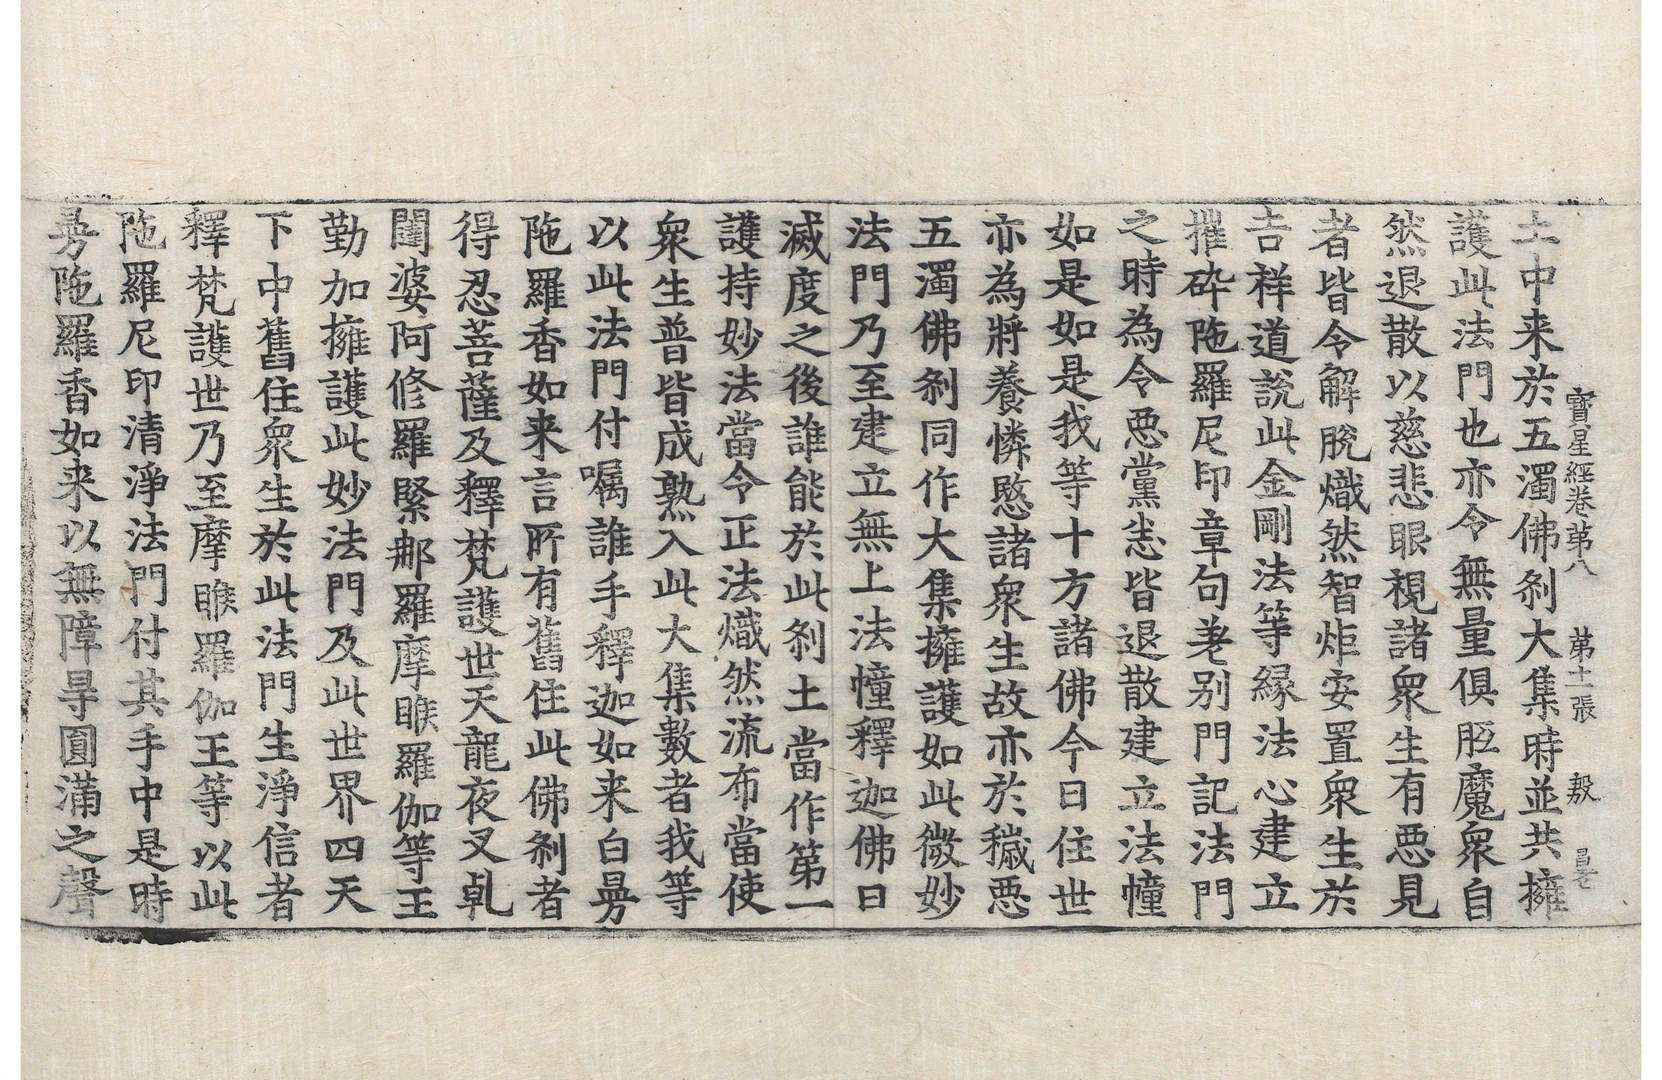 寶星經卷第八　第十一張　敢
土中来於五濁佛刹大集時並共擁
護此法門也亦令無量俱胝魔衆自
然退散以慈悲眼視諸衆生有惡見
者皆令解脫熾然智炬安置衆生於
吉祥道說此金剛法等緣法心建立
摧碎陁羅尼印章句差别門記法門
之時為令惡黨悉皆退散建立法幢
如是如是我等十方諸佛今日住世
亦為將養憐愍諸衆生故亦於穢惡
五濁佛刹同作大集擁護如此微妙
法門乃至建立無上法幢釋迦佛曰
滅度之後誰能於此刹土當作第一
護持妙法當令正法熾然流布當使
衆生普皆成熟入此大集數者我等
以此法門付囑誰手釋迦如来白㬅
陁羅香如来言所有舊住此佛刹者
得忍菩薩及釋梵護世天龍夜叉乹
闥婆阿修羅緊那羅摩睺羅伽等王
勤加擁護此妙法門及此世界四天
下中舊住衆生於此法門生淨信者
釋梵護世乃至摩睺羅伽王等以此
陁羅尼印清淨法門付其手中是時
㬅陁羅香如来以無障㝵圓滿之聲